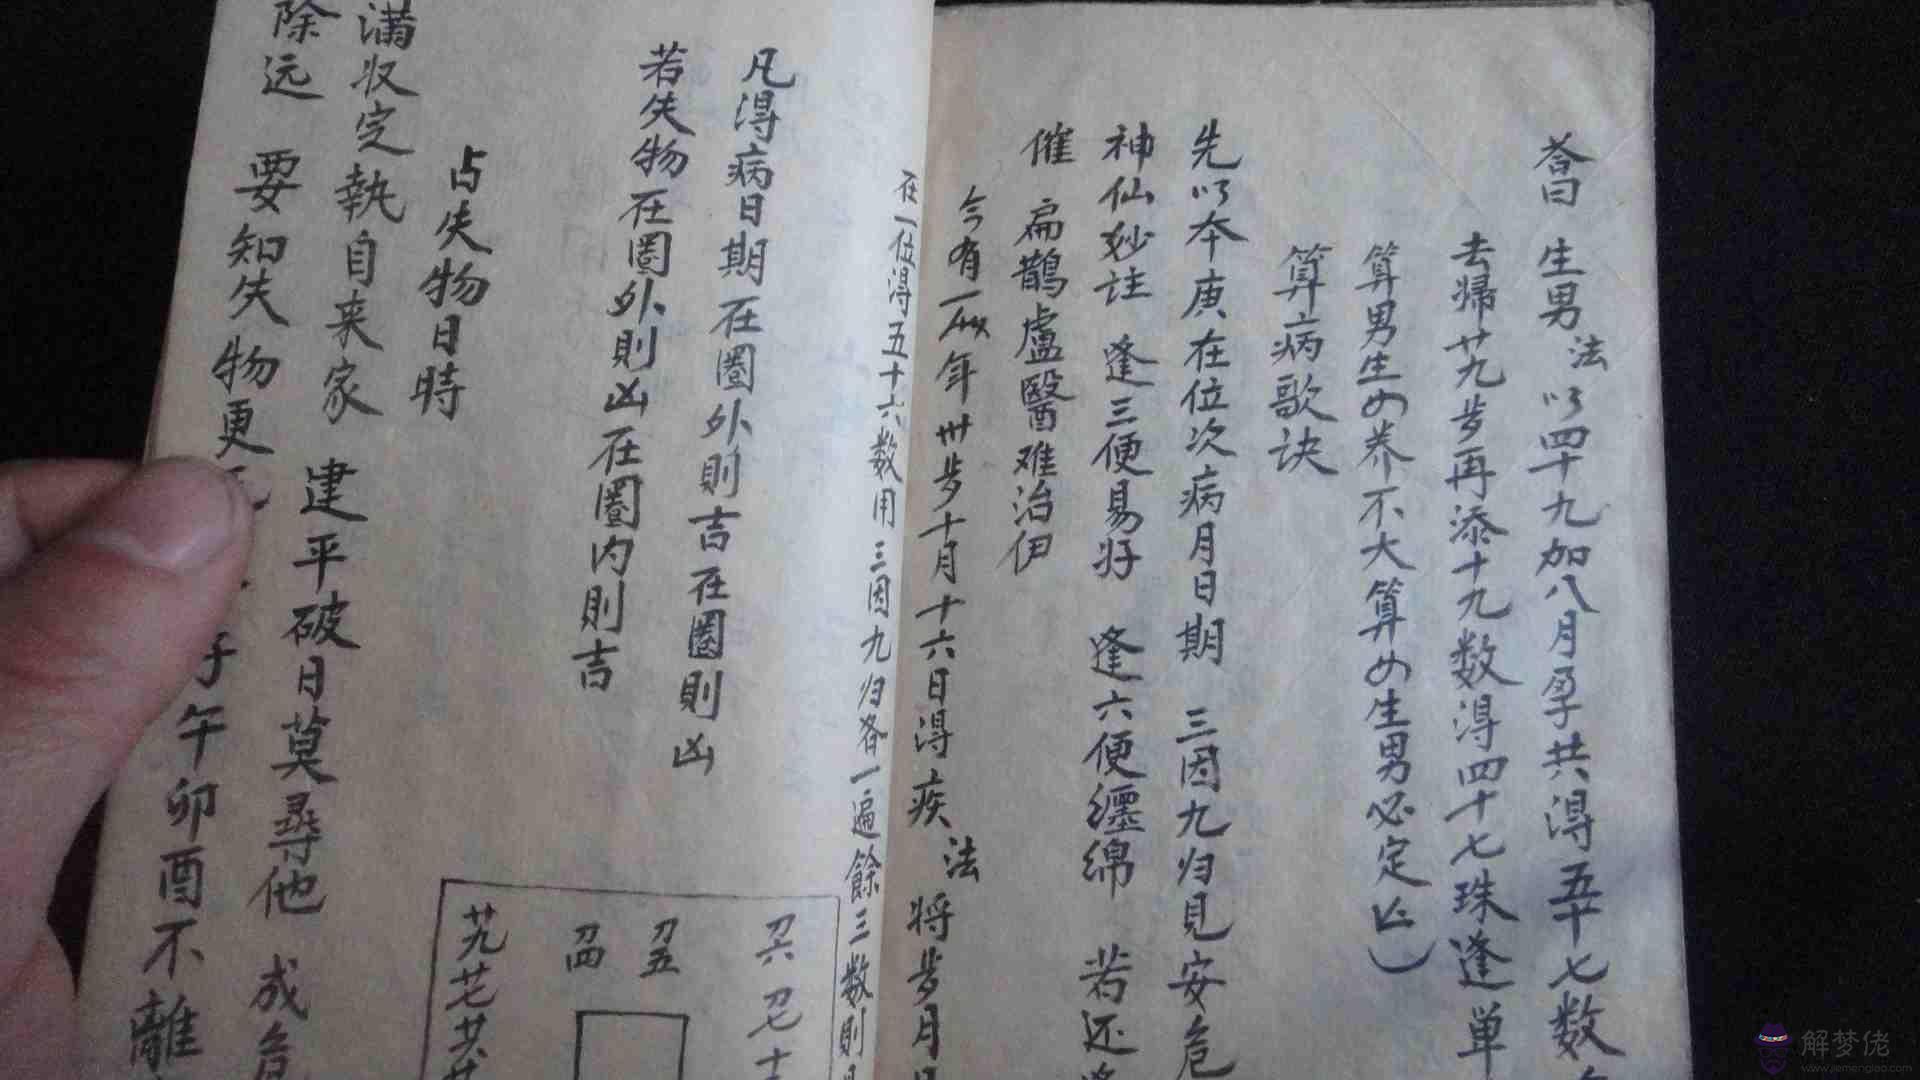 荅曰 生男 法 以四十九加八月孕共得五十七数
去歸廿九岁再添十九数得四十七珠逢单
算男生女养不大算女生男必定亡
算病歌诀
先以本庚在位次病月日期 三因九归見安危
神仙妙註 逢三便易好 逢六便纒綿 若还逢
催 扁鹊盧醫难治伊
今有一人年卅岁十月十六日得疾 法 将岁月日
在一位得五十六数用三因九归各一遍餘三数則
凡得病日期在圏外則吉在圏則凶
若失物在圏外則凶在圏内則吉
占失物日時
满収定執自来家 建平破日莫尋他 成危
除远 要知失物更 子午卯酉不離
廿九 廿七
刀四
刀五
刀六 刀七
解梦佬
www.jiemenglao.com